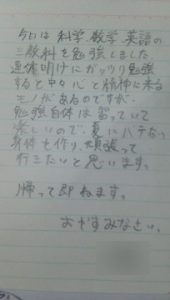 今日は科学、数学、英語の
三教科を勉強しました
連休明けにガッツリ勉強
すると中々心と精神に来る
モノがあるのですが、
勉強自体は習っていて
楽しいので、夏にバテない
身体を作り、頑張って
行こうと思います。
帰って即ねます。
おやすみなさい。